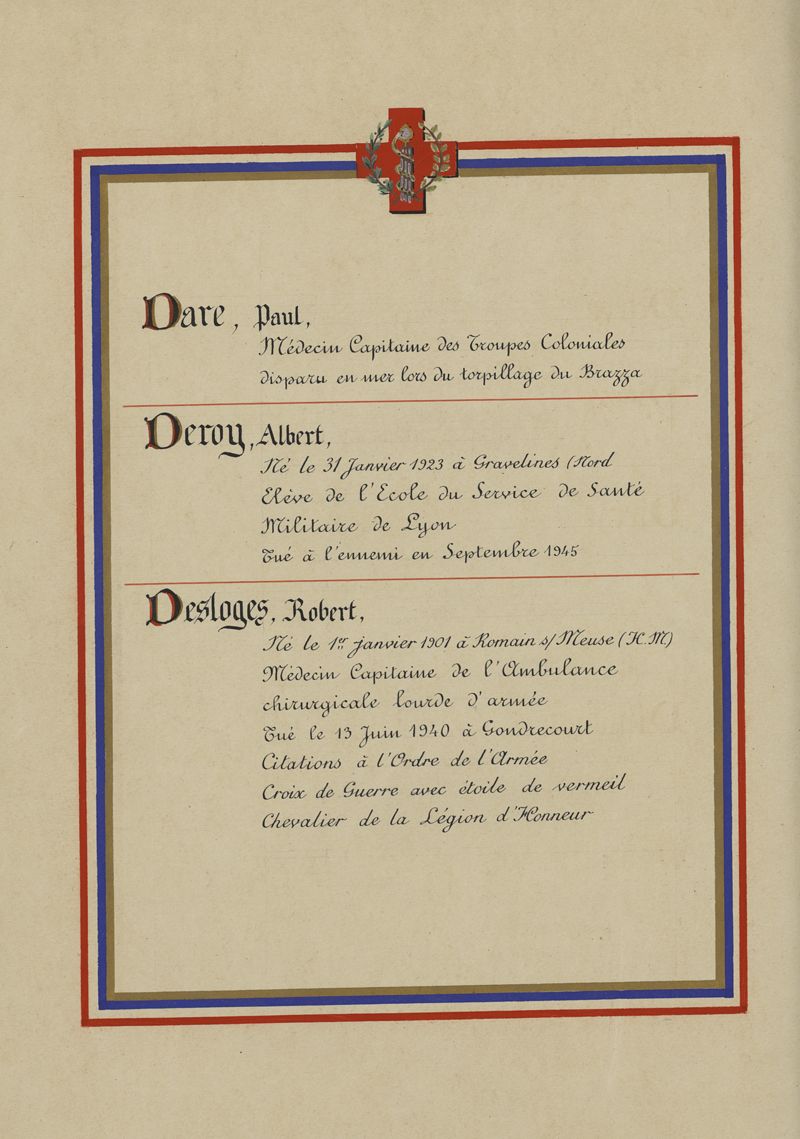 Dare, Paul,
Médecin Capitaine des Troupes Coloniales
disparu en mer lors du torpillage du Brazza
Deroy, Albert,
Né le 31 Janvier 1923 à Gravelines (Nord
Elève de l'Ecole du Service de Santé
Militaire de Lyon
Tué à l'ennemi en Septembre 1945
Desloges, Robert,
Né le 1er Janvier 1901 à Romain s/Meuse (H.M)
Médecin Capitaine de l'Ambulance
chirurgicale lourde d'armée
Tué le 13 Juin 1940 à Gondrecourt
Citations à l'Ordre de l'Armée
Croix de Guerre avec étoile de vermeil
Chevalier de la Légion d'Honneur